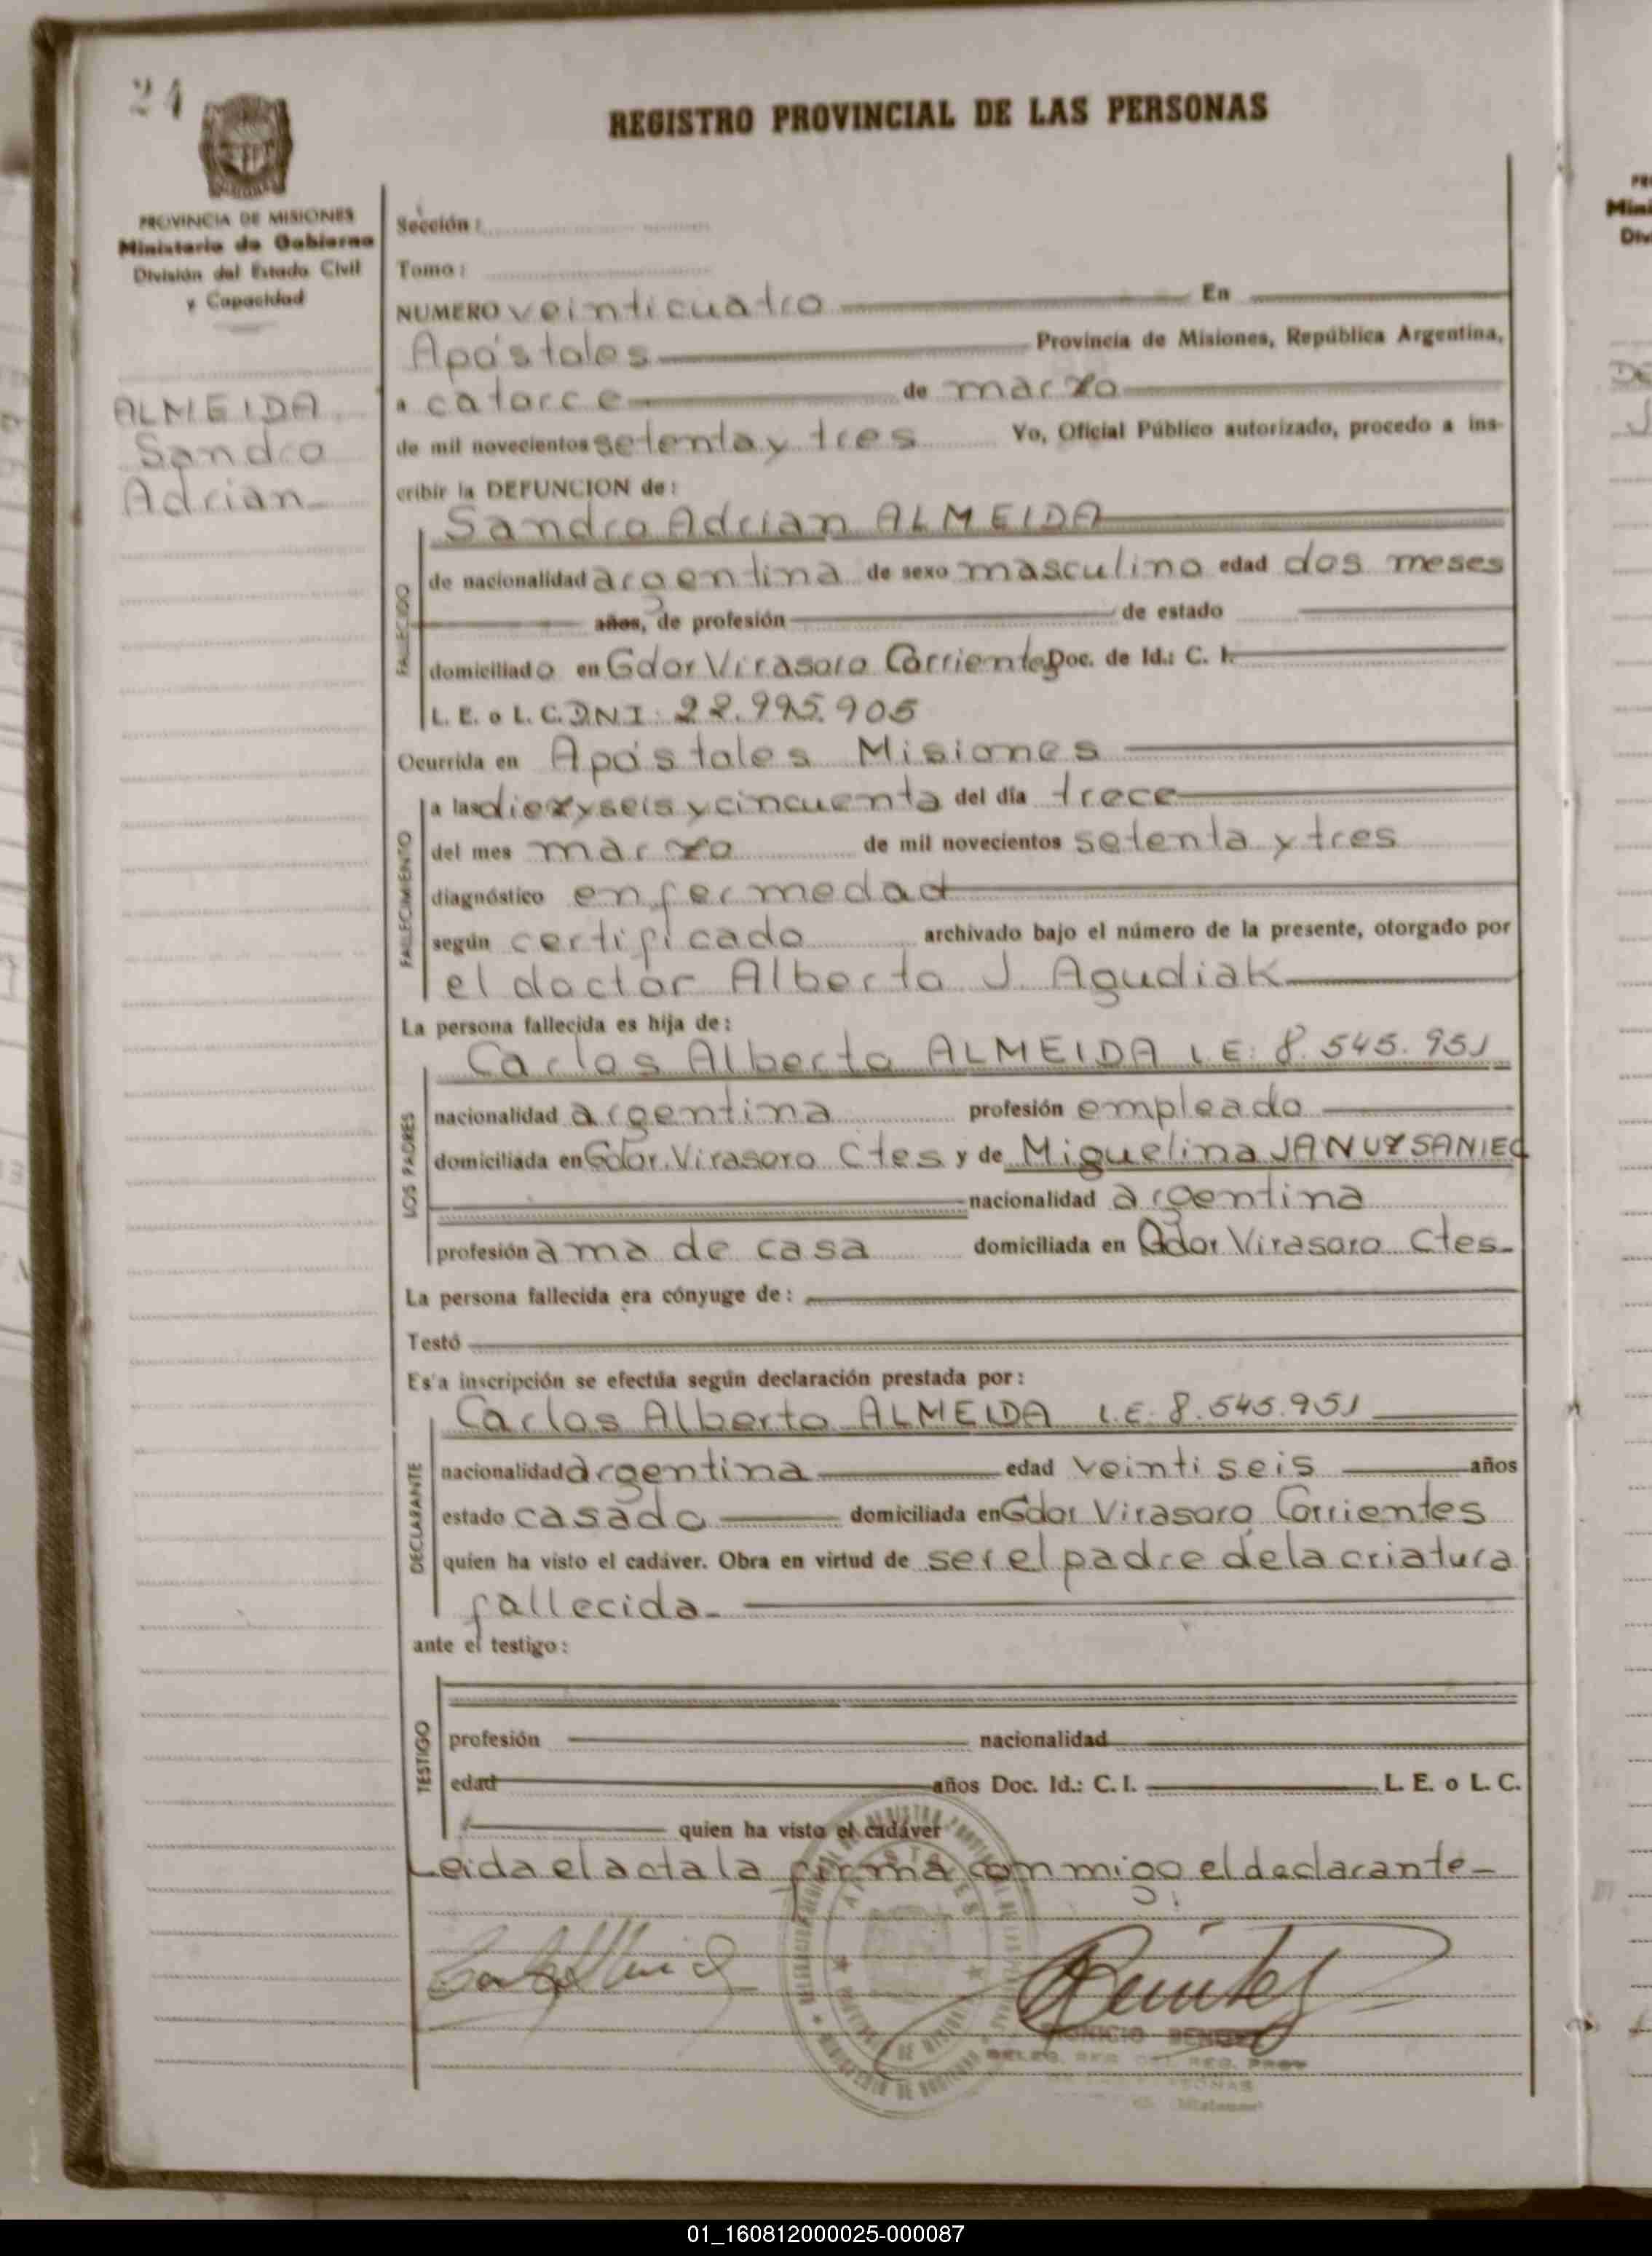 24
REGISTRO PROVINCIAL DE LAS PERSONAS
PROVINCIA DE MISIONES
Ministerio de Gobierno
División del Estado Civil
y Capacidad
ALMEIDA
Sandro
Adrian-
Sección:
Tomo:
NUMERO veinticuatro En
Apóstoles Provincia de Misiones, República Argentina,
a catorce de marzo
de mil novecientos setenta y tres Yo, Oficial Público autorizado, procedo a ins-
cribir la DEFUNCION de:
Sandro Adrian ALMEIDA
FALLECIDO
de nacionalidad argentina de sexo masculino edad dos meses
años, de profesión de estado
domiciliado en Gdor Virasoro Corrientes Doc. de Id.: C. I.
L. E. o L. C. DNI: 22.995.905
Ocurrida en Apóstoles Misiones
FALLECIMIENTO
a las diez y seis y cincuenta del día trece
del mes marzo de mil novecientos setenta y tres
diagnóstico enfermedad
según certificado archivado bajo el número de la presente, otorgado por
el doctor Alberto J. Agudiak
La persona fallecida es hija de:
LOS PADRES
Carlos Alberto ALMEIDA L.E: 8.545.951
nacionalidad argentina profesión empleado
domiciliada en Gdor. Virasoro Ctes y de Miguelina JANUZSANIEC
nacionalidad argentina
profesión ama de casa domiciliada en Gdor Virasoro Ctes-
La persona fallecida era cónyuge de:
Testó
Es'a inscripción se efectúa según declaración prestada por:
DECLARANTE
Carlos Alberto ALMEIDA L.E: 8.545.951
nacionalidad argentina edad veintiseis años
estado casado domiciliada en Gdor Virasoro Corrientes
quien ha visto el cadáver. Obra en virtud de ser el padre de la criatura
fallecida-
ante el testigo:
TESTIGO
profesión nacionalidad
edad años Doc. Id.: C. I. L. E. o L. C.
quien ha visto el cadáver
Leida el acta la firma conmmigo el declarante-
01_160812000025-000087